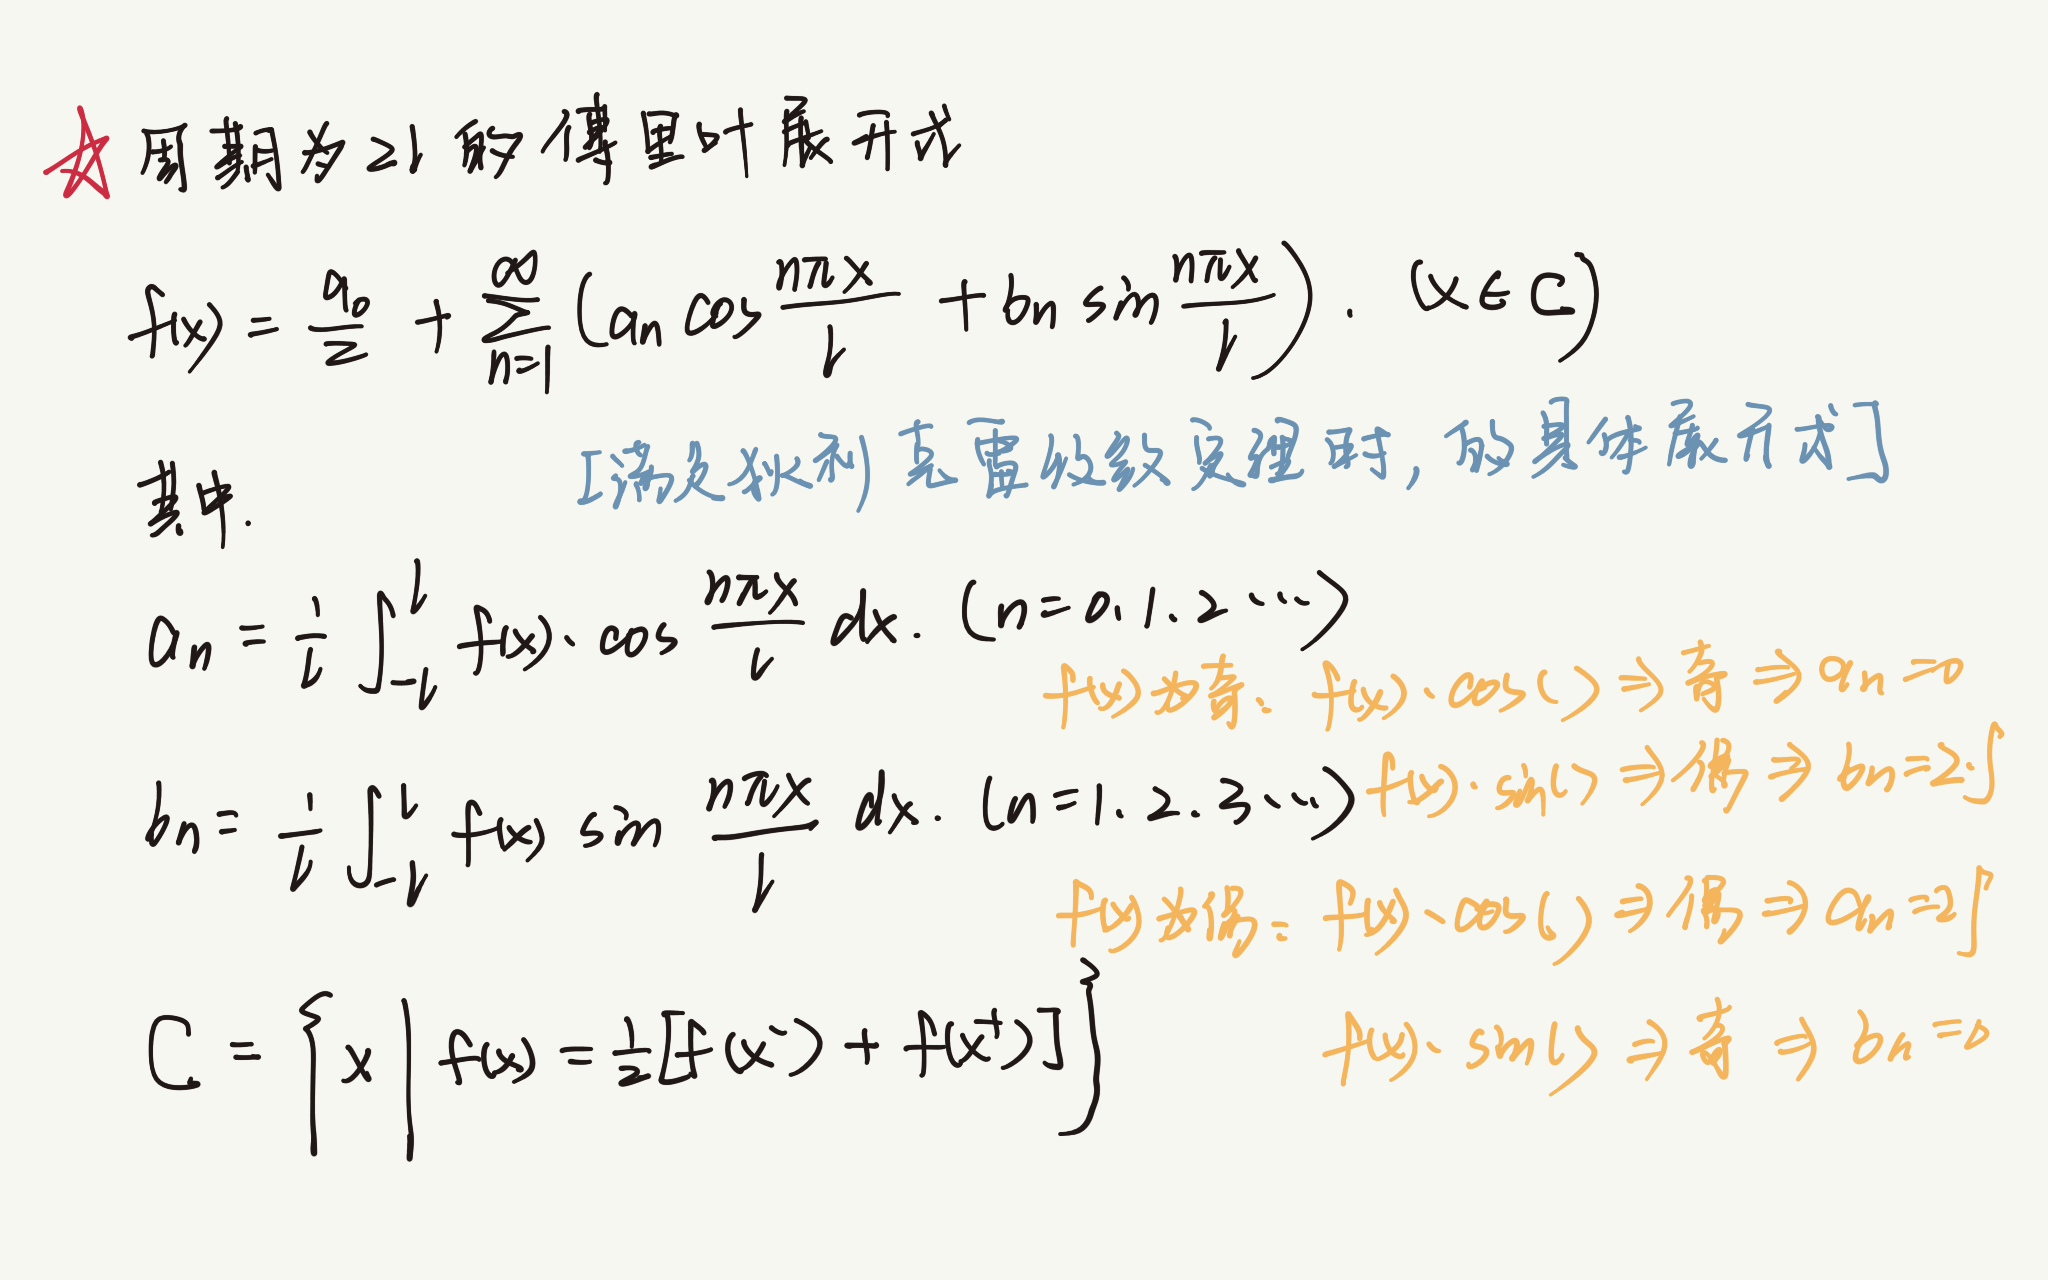 周期为2l的傅里叶展开式
f(x) = a₀/2 + ∑_{n=1}^{∞} (aₙ cos nπx/l + bₙ sin nπx/l). (x ∈ C)
[满足狄利克雷收敛定理时, 的具体展开式]
其中.
aₙ = 1/l ∫_{-l}^{l} f(x)·cos nπx/l dx. (n=0.1.2…)
f(x)为奇: f(x)·cos() ⇒ 奇 ⇒ aₙ=0
bₙ = 1/l ∫_{-l}^{l} f(x) sin nπx/l dx. (n=1.2.3…)
f(x)·sin() ⇒ 偶 ⇒ bₙ=2·∫
f(x)为偶: f(x)·cos() ⇒ 偶 ⇒ aₙ=2∫
C = {x | f(x) = 1/2[f(x⁻) + f(x⁺)]}
f(x)·sin() ⇒ 奇 ⇒ bₙ=0